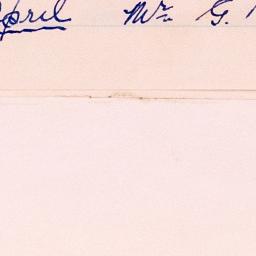 April Mr. G.